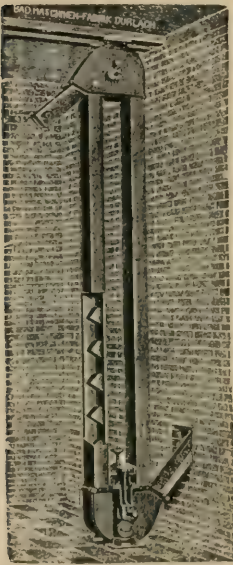 BAD. MASCHINEN-FABRIK DURLACH